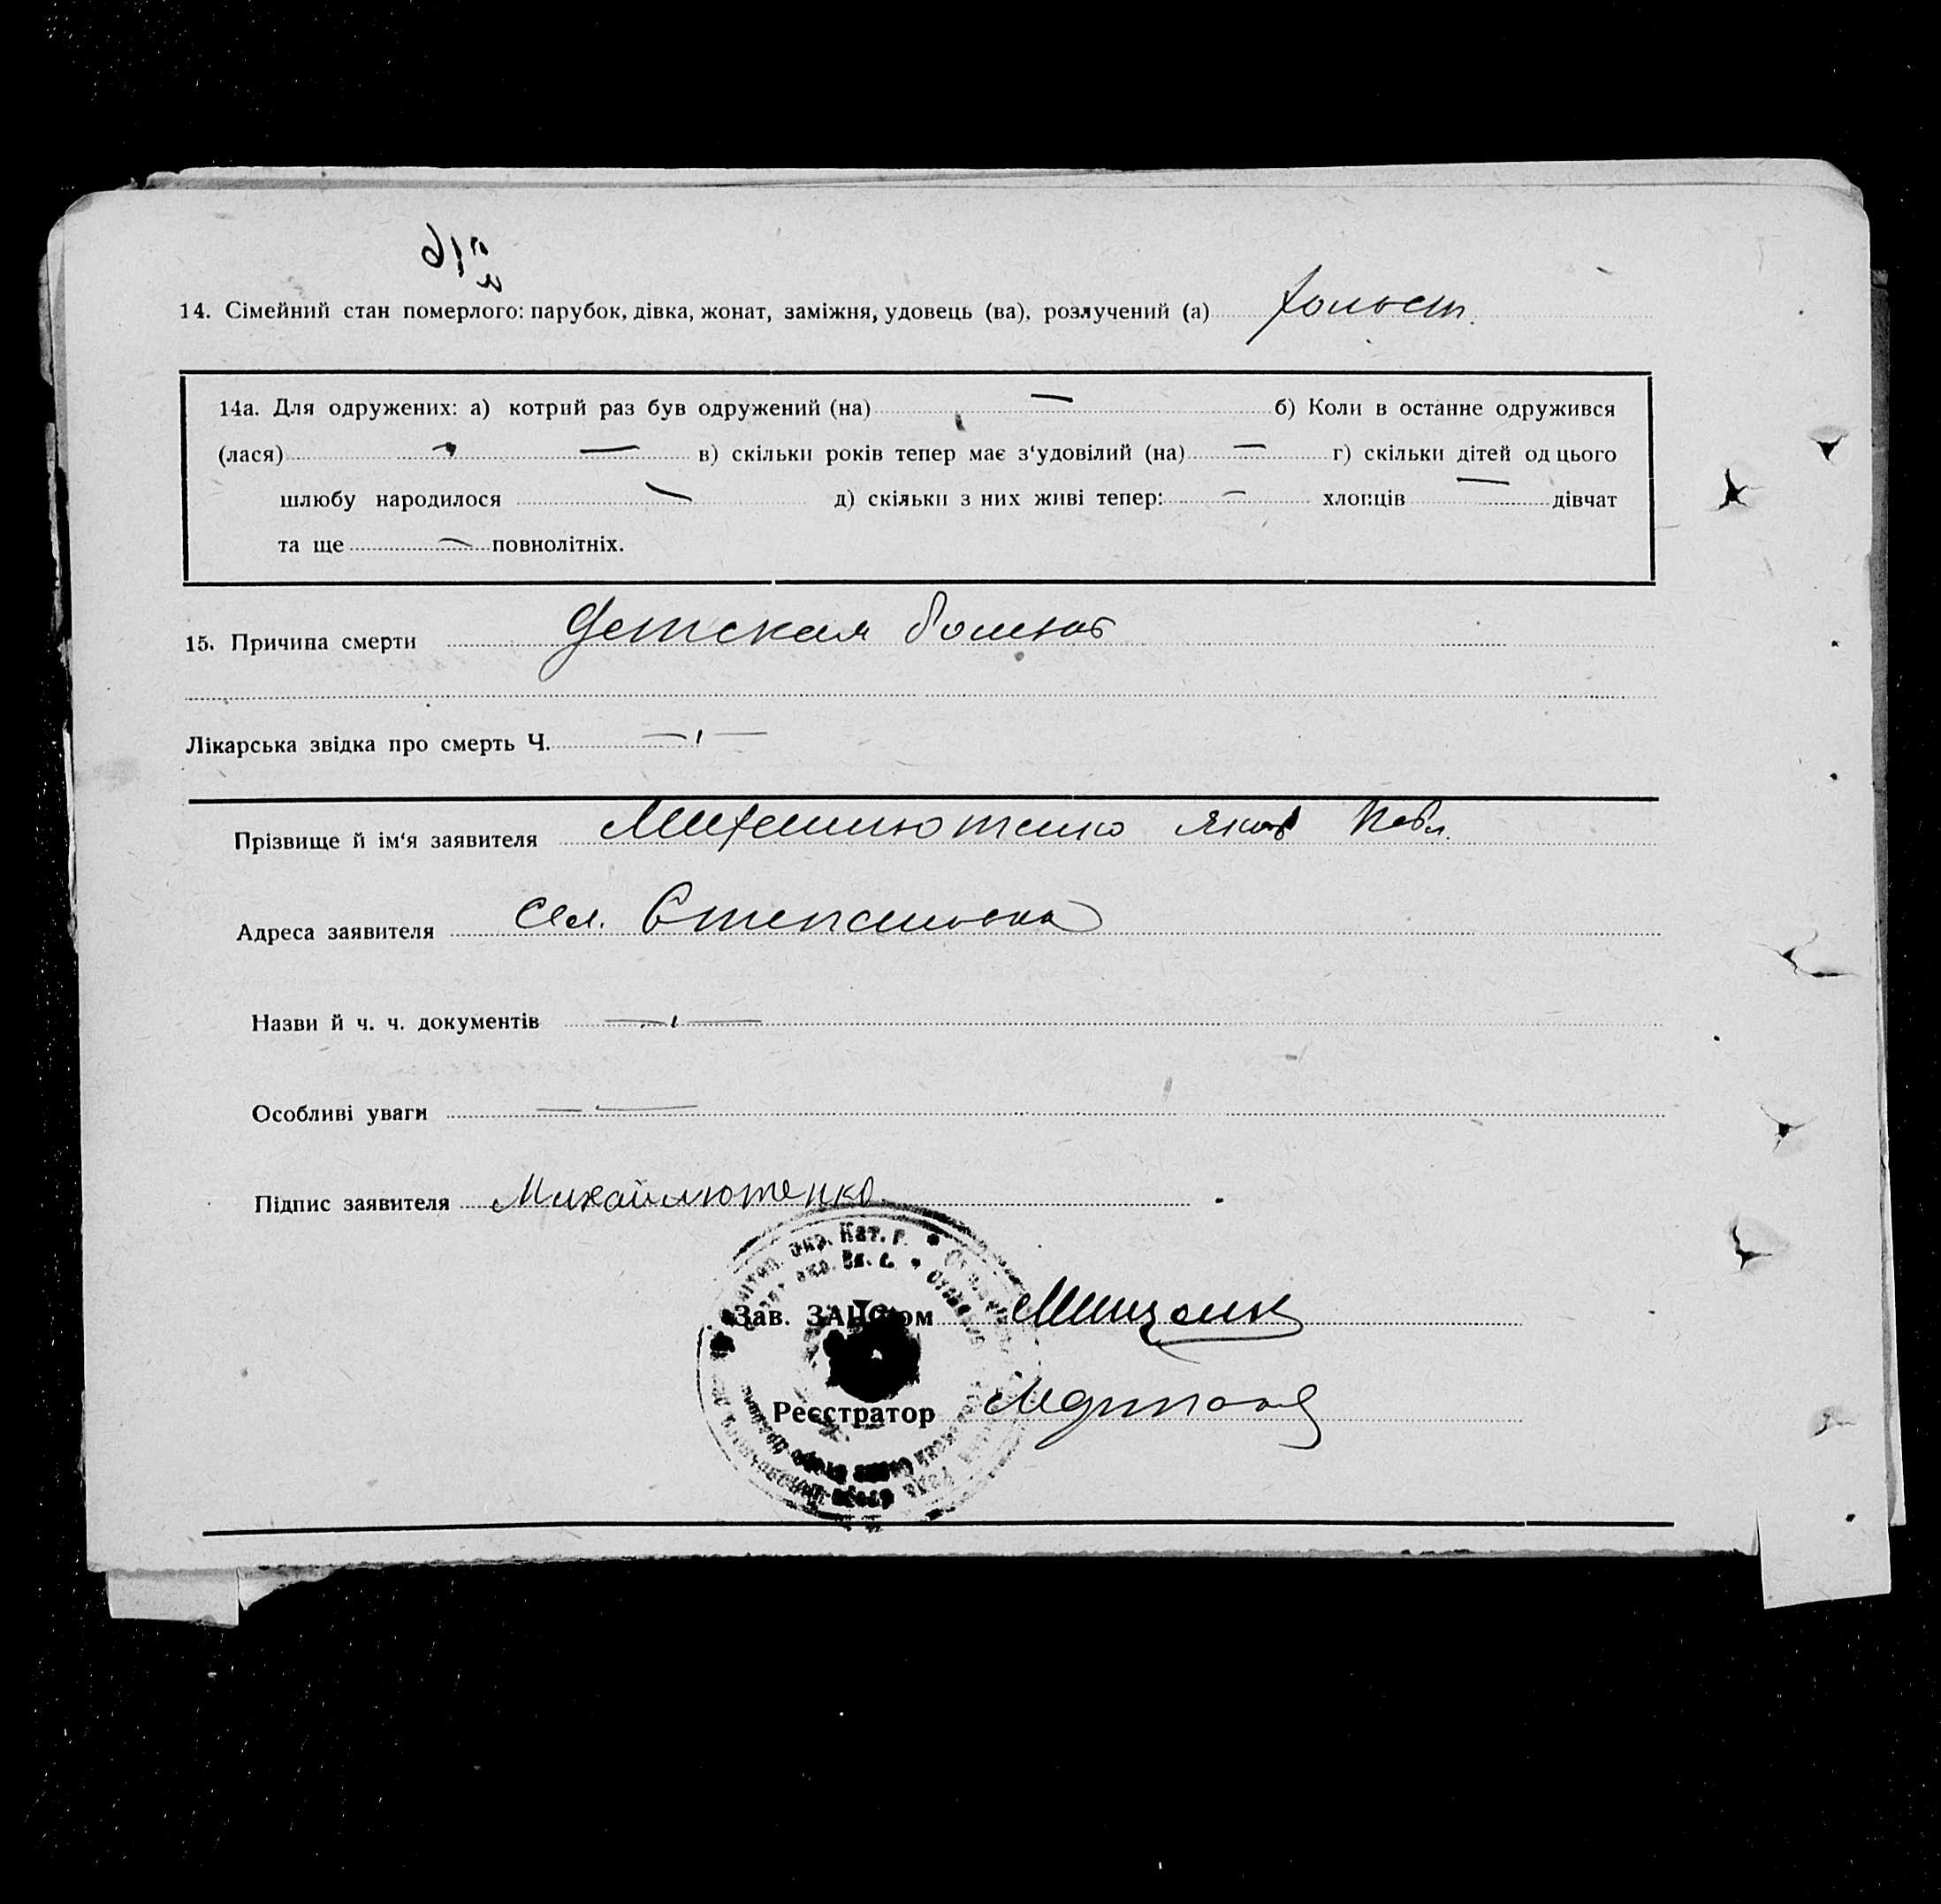 14. Сімейний стан померлого: парубок, дівка, жонат, заміжня, удовець (ва), розлучений (а) холост.
14а. Для одружених: а) котрий раз був одружений (на) — б) Коли в останне одружився
(лася) — в) скільки років тепер має з'удовілий (на) — г) скільки дітей од цього
шлюбу народилося — д) скільки з них живі тепер: — хлопців — дівчат
та ще — повнолітніх.
15. Причина смерти Детская болезнь
Лікарська звідка про смерть Ч. —„—
Прізвище й ім'я заявителя Михайлютенко Яков Павл.
Адреса заявителя сел. Степановка
Назви й ч. ч. документів —„—
Особливі уваги — —
Підпис заявителя Михайлютенко
Зав. ЗАЦСом
Реєстратор